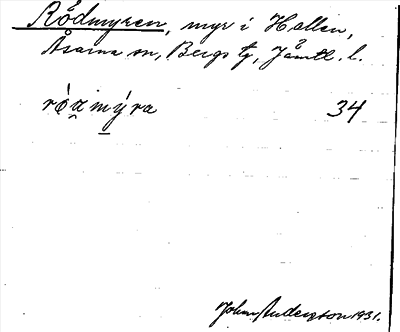 Rödmyren, myr i Hallen,
Åsarna sn, Bergs tg, Jämtl. l.
róamýra 34
John Anderzson 1931.